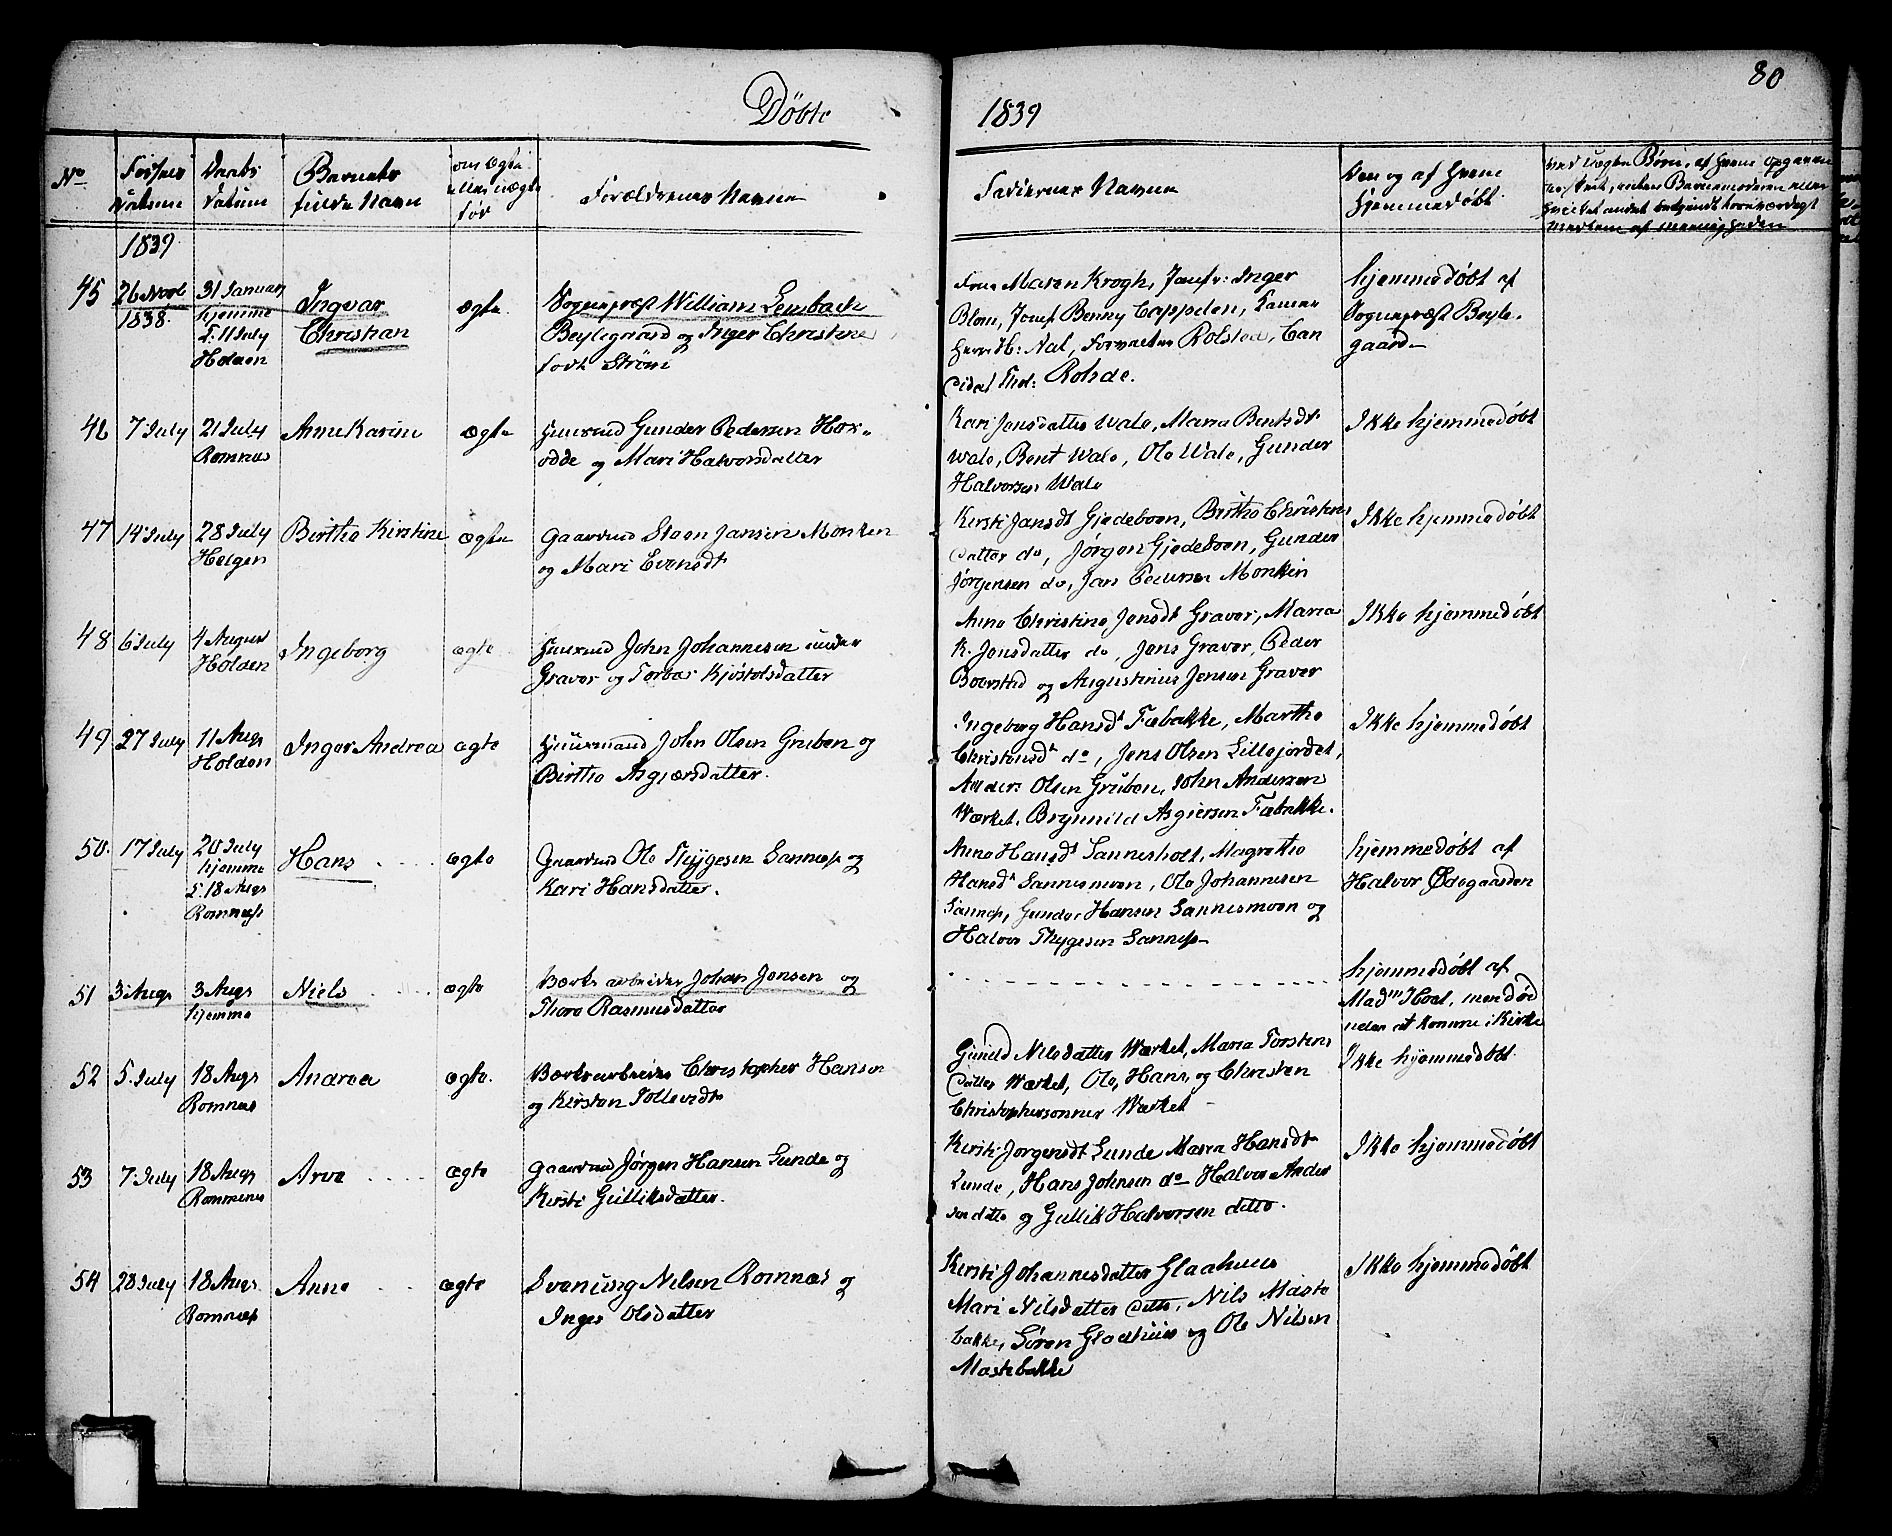 80
Døbte 1839
No
Fødsels datum
Daabs datum
Barnets fulde Navn
om ægte eller uægte fød
Forældrenes Navne
Faddernes Navne
Hvor og af Hvem Hjemmedøbt
1839
45
26 Novb 1838.
31 Januar hjemme d: 11 July Holden
Ingvar Christian
ægte
Sognepræst William Lembach
Beylegaard og Inger Christine
født Strøm
Frue Maren Krogh, Jomfr: Inger
Blom, Jomf Benny Cappelen, Kammer
herre H: Aal, Forvalter Rolsted, Can
didat Theol: Rohde.
hjemmedøbt af
Sognepræst Beyle-
gaard
46
7 July
21 July Romnæs
Anne Karine
ægte
Huusmd Gunder Pedersen Hox-
odde og Mari Halvorsdatter
Kari Jonsdatter Wale, Maria Bentsdt
Wale, Bent Wale, Ole Wale, Gunder
Halvorsen Wale
Ikke hjemmedøbt
47
14 July
28 July Helgen
Birthe Kirstine
ægte
Gaardmd Steen Jansen Monken
og Mari Evensdt
Kersti Jansdt Gjedeboen, Birthe Christens
datter do, Jørgen Gjedeboen, Gunder
Jørgensen do, Jans Pedersen Monken
Ikke hjemmedøbt
48
6 July
4 August Holden
Ingeborg
ægte
Huusmd John Johannesen under
Graver og Torbør Kjøstolsdatter
Anne Christine Jensdt Graver, Maria
K. Jensdatter do, Jens Graver, Peder
Boersted og Augustinus Jensen Graver
Ikke hjemmedøbt
49
27 July
11 Augs Holden
Inger Andrea
ægte
Huusmand John Olsen Gruben og
Birthe Asgjersdatter.
Ingeborg Hansdt Fæbakke, Marthe
Christensdt do, Jens Olsen Lillejordet,
Anders Olsen Gruben, John Andersen
Værket, Brynnild Asgiersen Fæbakke.
Ikke hjemmedøbt
50.
17 July
20 July hjemme d: 18 Augs Romnæs
Hans
ægte
Gaardmd Ole Thygesen Sannes og
Kari Hansdatter.
Anne Hansdt Sannesholt, Magrethe
Hansdt Sannesmoen, Ole Johannesen
Sannes, Gunder Hansen Sannesmoen og
Halvor Thygesen Sannes
hjemmedøbt af
Halvor Ødegaarden
51
3 Augs
3 Augs hjemme
Niels
ægte
Værks arbeider Johan Jensen og
Thore Rasmusdatter
hjemmedøbt af
Madm Hoel, men død
uden at komme i Kirke
52
5. July
18 Augs Romnæs
Andrea
ægte.
Værksarbeider Christopher Hansen
og Kirsten Tollevsdt
Gunild Nilsdatter Værket, Maria Torstens
datter Værket, Ole, Hans, og Christen
Christophersønner Værket
Ikke hjemmedøbt
53
7 July
18 Augs Romnæs
Arve
ægte
Gaardmd Jørgen Hansen Lunde og
Kirsti Gulliksdatter.
Kirsti Jørgensdt Lunde Maria Hansdt
Lunde, Hans Johnsen do Halvor Ander
sen ditto og Gullik Halvorsen ditto.
Ikke hjemmedøbt
54
28 July
18 Augs Romnæs
Anne
ægte
Svenning Nilsen Romnæs og
Inger Olsdatter
Kersti Johannesdatter Glaahuus
Mari Nilsdatter ditto, Nils Maste
bakke, Søren Glaahuus og Ole Nilsen
Mastebakke
Ikke hjemmedøbt